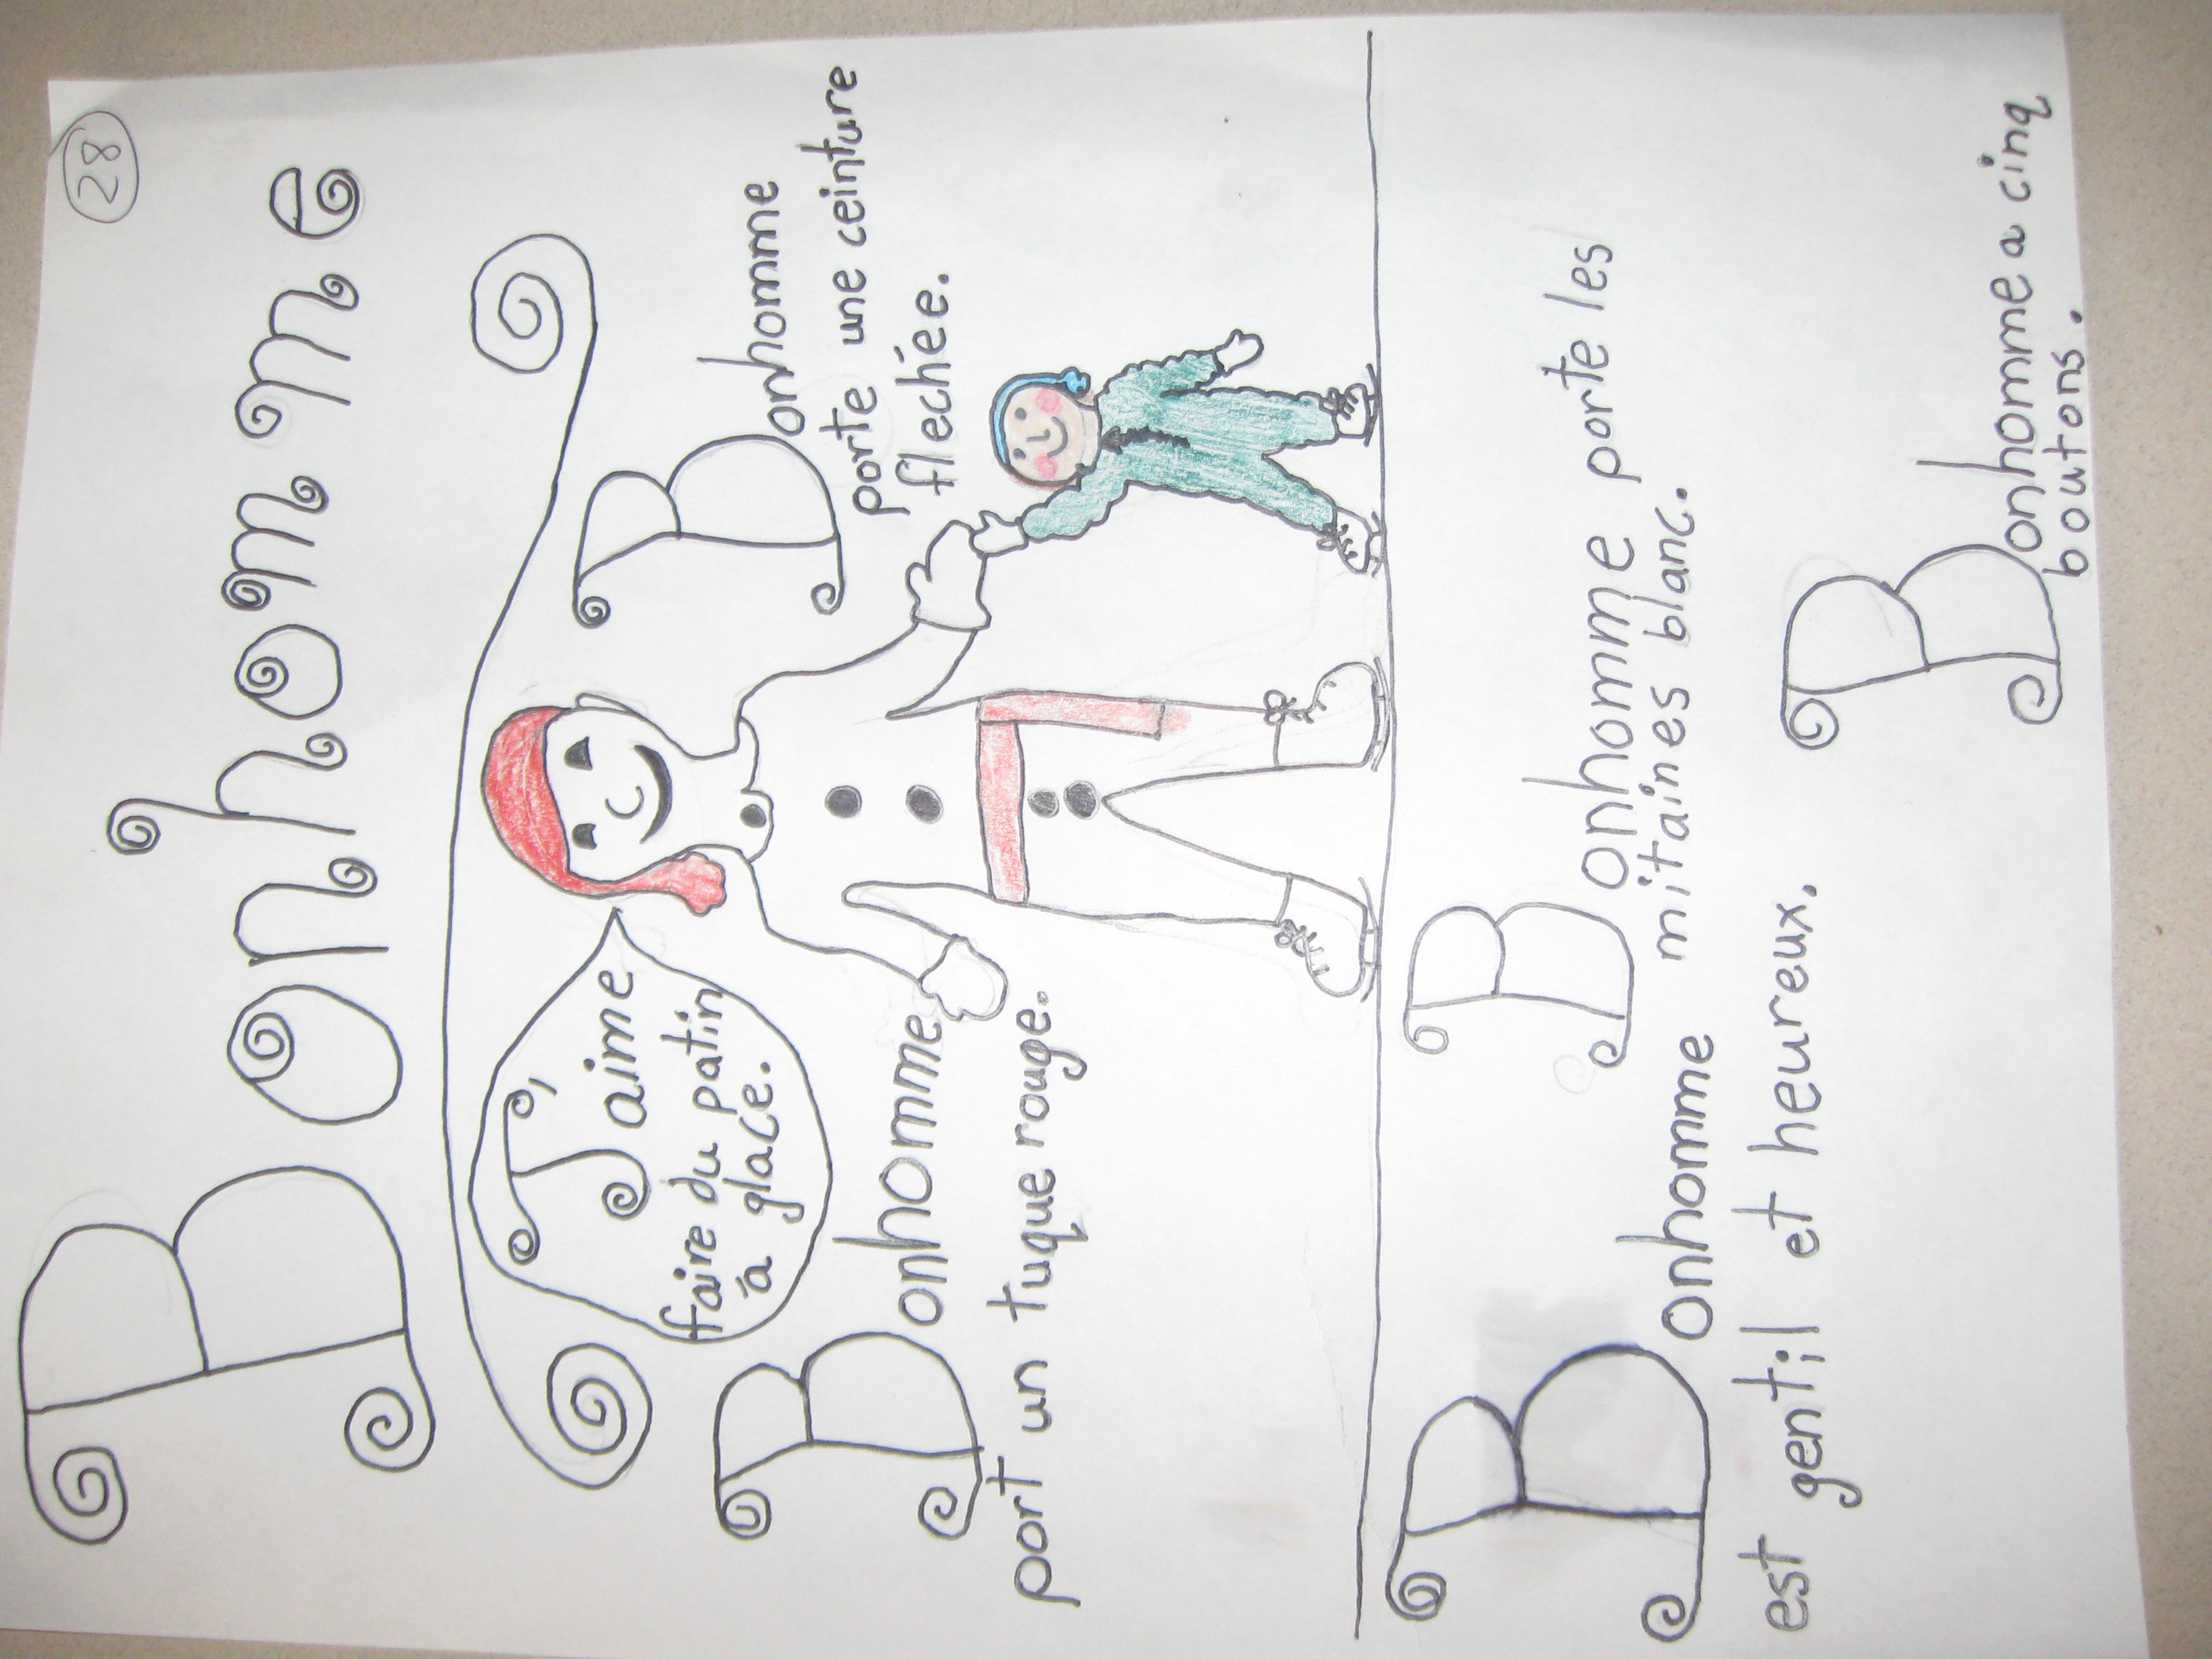 28
Bonhomme
J'aime
faire du patin
à glace.
Bonhomme
porte une ceinture
flechée.
Bonhomme
port un tuque rouge.
Bonhomme porte les
mitaines blanc.
Bonhomme
est gentil et heureux.
Bonhomme a cinq
boutons.